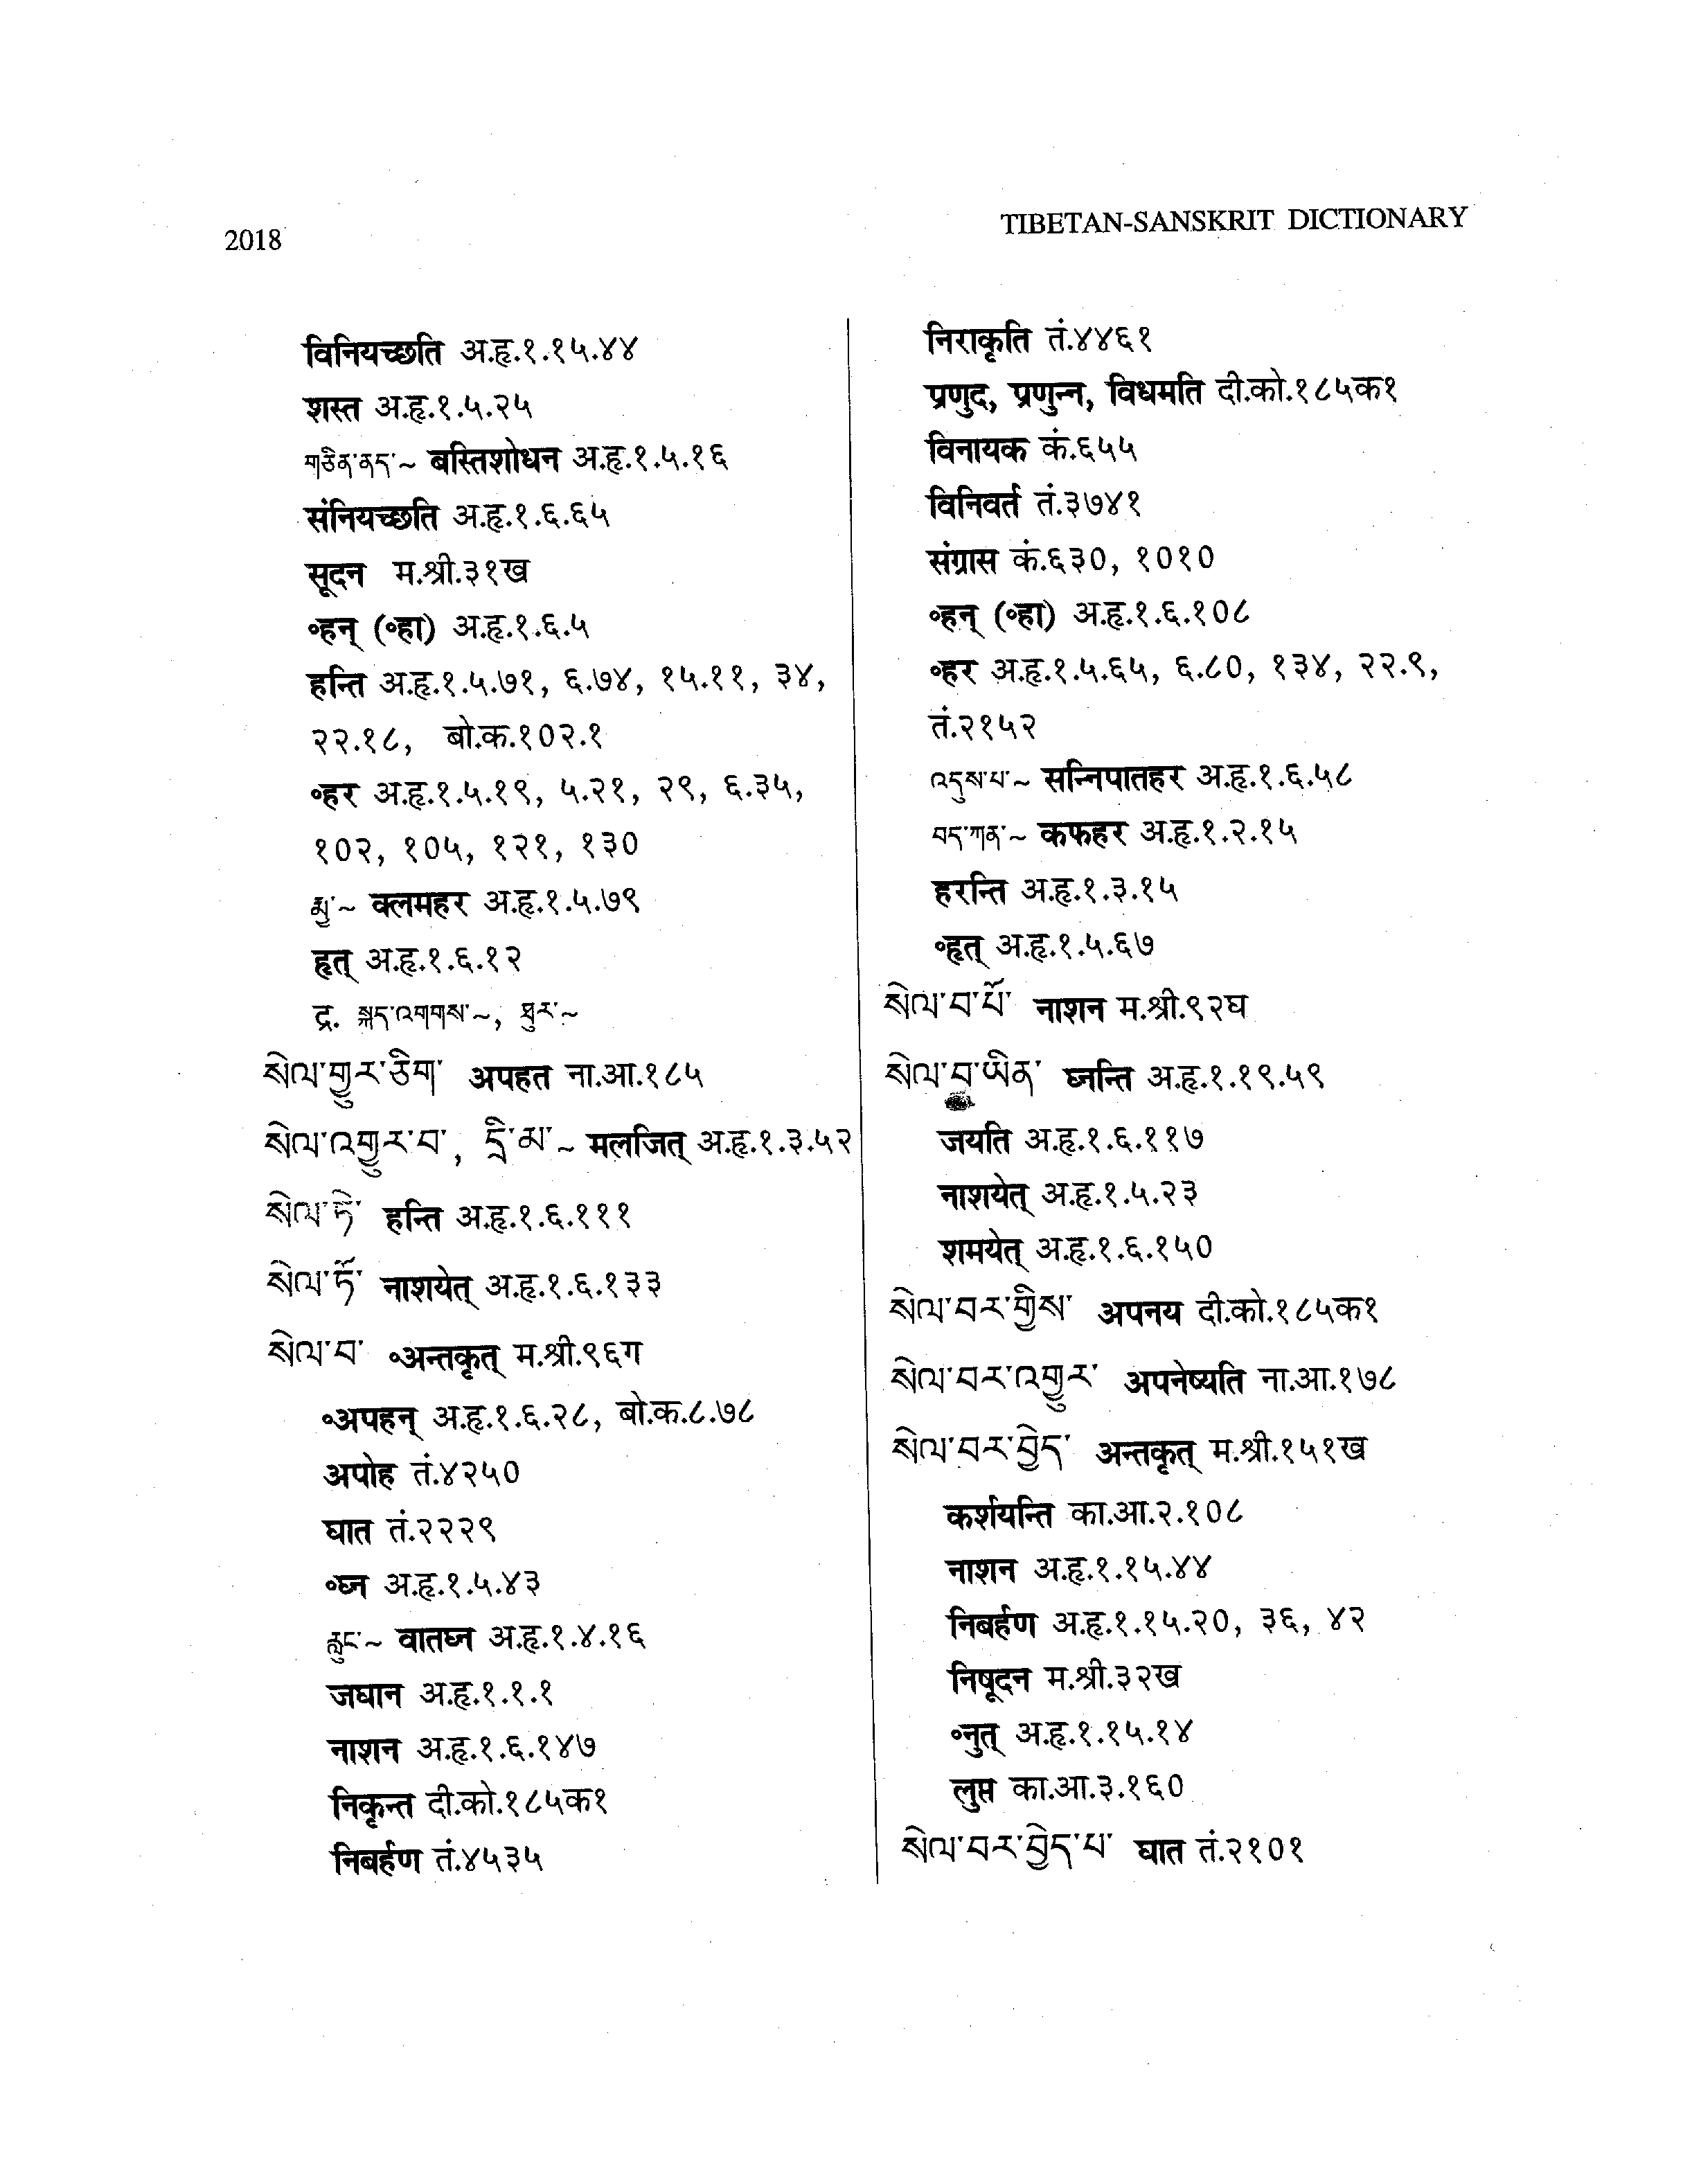 2018
TIBETAN-SANSKRIT DICTIONARY
विनियच्छति अ.हृ.१.१५.४४
शस्त अ.हृ.१.५.२५
གཅིན་ནད་~ बस्तिशोधन अ.हृ.१.५.१६
संनियच्छति अ.हृ.१.६.६५
सूदन म.श्री.३१ख
॰हन् (॰हा) अ.हृ.१.६.५
हन्ति अ.हृ.१.५.७१, ६.७४, १५.११, ३४,
२२.१८, बो.क.१०२.१
॰हर अ.हृ.१.५.१९, ५.२१, २९, ६.३५,
१०२, १०५, १२१, १३०
མྱ་~ क्लमहर अ.हृ.१.५.७९
हृत् अ.हृ.१.६.१२
द्र. སྐད་འགགས་~, ཐུར་~
སེལ་གྱུར་ཅིག་ अपहत ना.आ.१८५
སེལ་འགྱུར་བ་, དྲི་མ་~ मलजित् अ.हृ.१.३.५२
སེལ་ཏེ་ हन्ति अ.हृ.१.६.१११
སེལ་ཏོ་ नाशयेत् अ.हृ.१.६.१३३
སེལ་བ་ ॰अन्तकृत् म.श्री.९६ग
॰अपहन् अ.हृ.१.६.२८, बो.क.८.७८
अपोह तं.४२५०
घात तं.२२२९
॰घ्न अ.हृ.१.५.४३
རླུང་~ वातघ्न अ.हृ.१.४.१६
जघान अ.हृ.१.१.१
नाशन अ.हृ.१.६.१४७
निकृन्त दी.को.१८५क१
निबर्हण तं.४५३५
निराकृति तं.४४६१
प्रणुद, प्रणुन्न, विधमति दी.को.१८५क१
विनायक कं.६५५
विनिवर्त तं.३७४१
संग्रास कं.६३०, १०१०
॰हन् (॰हा) अ.हृ.१.६.१०८
॰हर अ.हृ.१.५.६५, ६.८०, १३४, २२.९,
तं.२१५२
འདུས་པ་~ सन्निपातहर अ.हृ.१.६.५८
བད་ཀན་~ कफहर अ.हृ.१.२.१५
हरन्ति अ.हृ.१.३.१५
॰हृत् अ.हृ.१.५.६७
སེལ་བ་པོ་ नाशन म.श्री.९२घ
སེལ་བ་ཡིན་ घ्नन्ति अ.हृ.१.१९.५९
जयति अ.हृ.१.६.११७
नाशयेत् अ.हृ.१.५.२३
शमयेत् अ.हृ.१.६.१५०
སེལ་བར་གྱིས་ अपनय दी.को.१८५क१
སེལ་བར་འགྱུར་ अपनेष्यति ना.आ.१७८
སེལ་བར་བྱེད་ अन्तकृत् म.श्री.१५१ख
कर्शयन्ति का.आ.२.१०८
नाशन अ.हृ.१.१५.४४
निबर्हण अ.हृ.१.१५.२०, ३६, ४२
निषूदन म.श्री.३२ख
॰नुत् अ.हृ.१.१५.१४
लुप्त का.आ.३.१६०
སེལ་བར་བྱེད་པ་ घात तं.२१०१